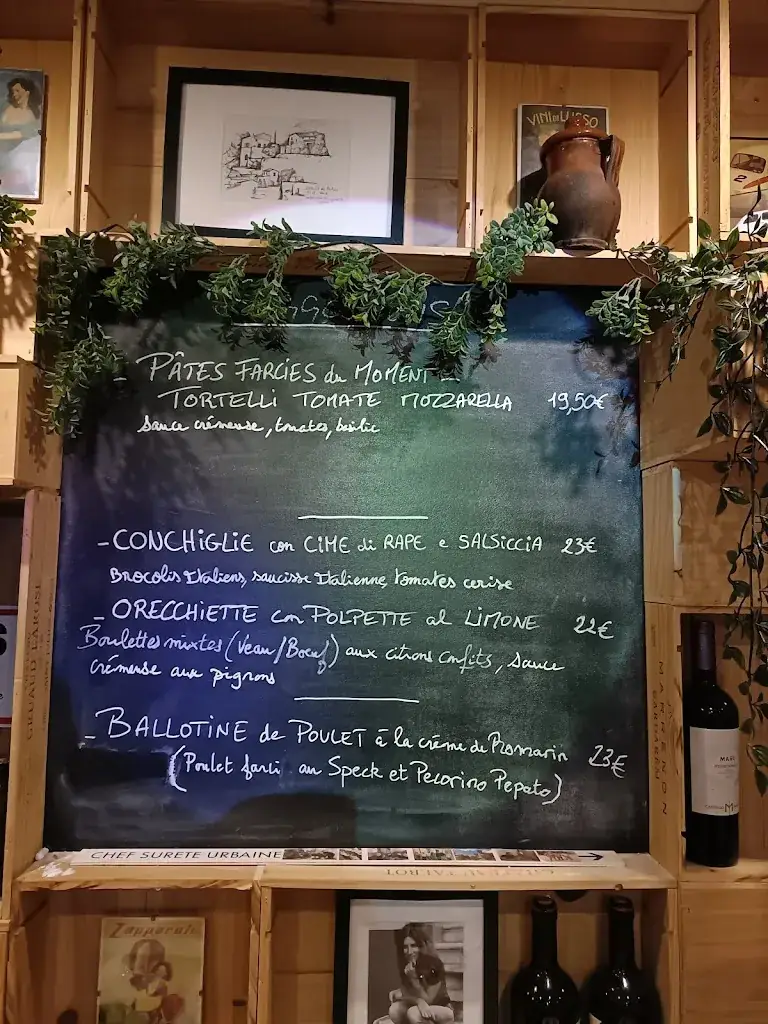 VINI di LUSSO
- PÂTES FARCIES du MOMENT -
TORTELLI TOMATE MOZZARELLA 19,50€
Sauce crémeuse, tomates, basilic
- CONCHIGLIE con CIME di RAPE e SALSICCIA 23€
Brocolis Italiens, saucisse Italienne, tomates cerise
- ORECCHIETTE con POLPETTE al LIMONE 22€
Boulettes mixtes (Veau/Boeuf) aux citrons confits, sauce
crémeuse aux pignons
- BALLOTINE de POULET à la crème de Romarin 23€
(Poulet farci au Speck et Pecorino Pepato)
CHEF SURETE URBAINE
GRUAUD LAROSE